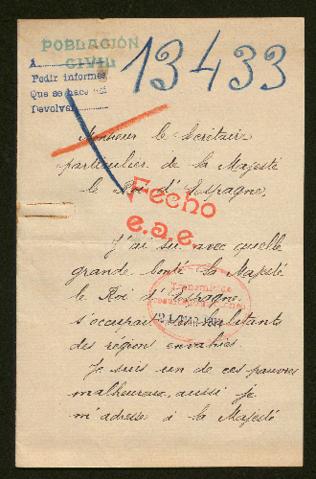 POBLACIÓN
CIVIL
13433
A
Pedir informes
Que se hace
Devolver
Monsieur le Secrétaire
particulier de Sa Majesté
le Roi d'Espagne,
Fecho
e.a.e.
J'ai su avec quelle
grande bonté Sa Majesté
le Roi d'Espagne
s'occupait des habitants
des régions envahies.
Je suis un de ces pauvres
malheureux, aussi je
m'adresse à Sa Majesté